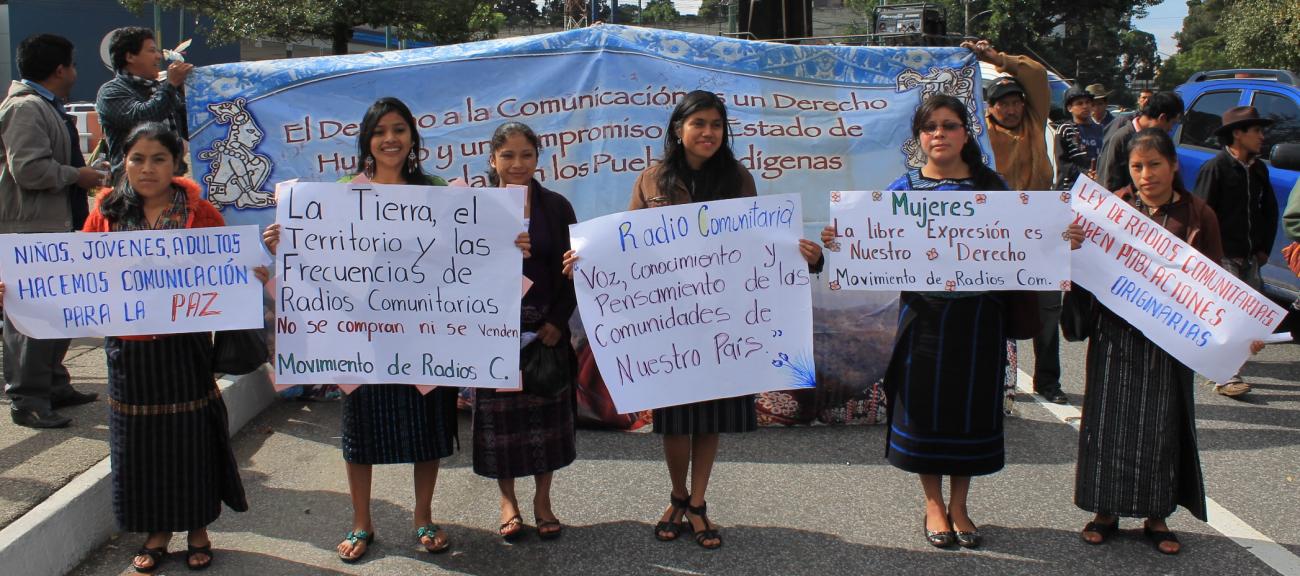 El a la Comunicación un Derecho
y un Estado de
los
NIÑOS, JÓVENES, ADULTOS
HACEMOS COMUNICACIÓN
PARA LA PAZ
La Tierra, el
Territorio y las
Frecuencias de
Radios Comunitarias
No se compran ni se venden
Movimiento de Radios C.
Radio Comunitaria
"Voz, Conocimiento y
Pensamiento de las
Comunidades de
Nuestro País."
Mujeres
La libre Expresión es
Nuestro Derecho
Movimiento de Radios Com.
LEY DE RADIOS COMUNITARIAS
POBLACIONES
ORIGINARIAS